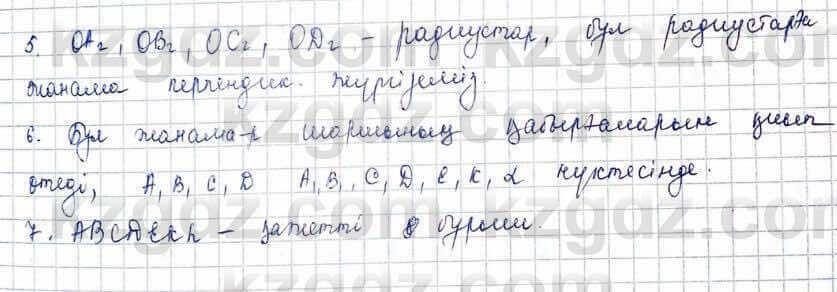 5. OA₂, OB₂, OC₂, OD₂ – радиустар, бұл радиустарға
жанама перпендик. жүргіземіз.
6. Бұл жанама-р шаршының қабырғаларын қиып
өтеді, A, B, C, D A₁, B₁, C, D, E, K, L нүктесінде.
7. ABCDEKL – қажетті 8 бұрыш.
kzgdz.com